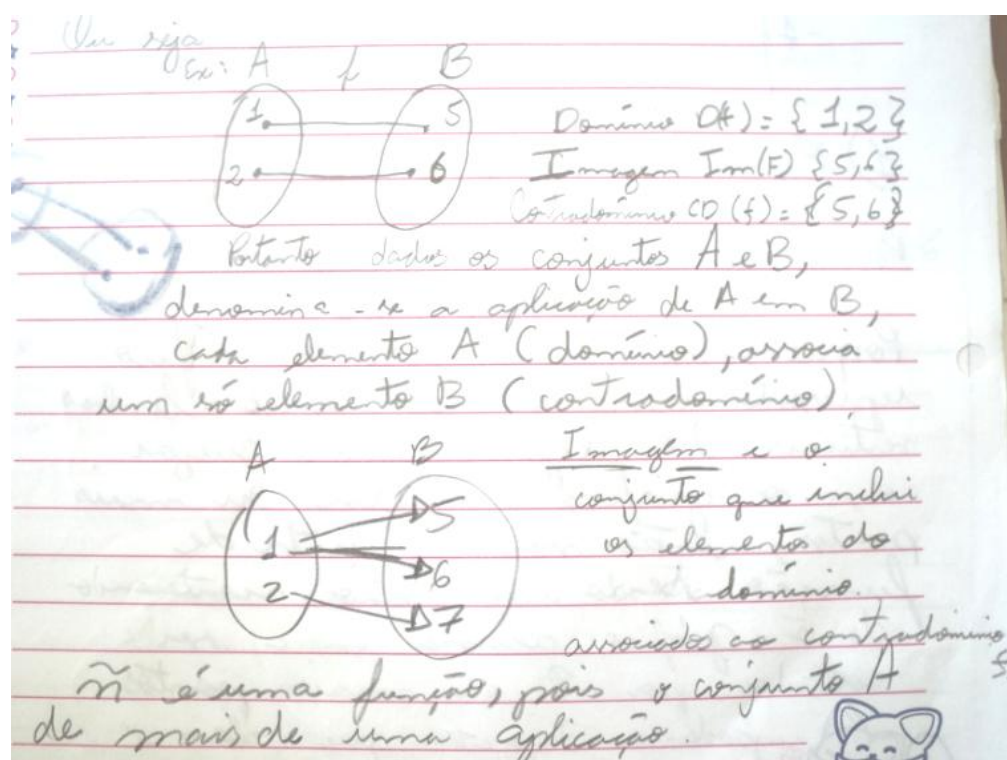 Ou seja
Ex: A f B
1 5 Domínio D(f) = { 1,2 }
2 6 Imagem Im(F) {5,6}
Contradomínio CD (f) = {5,6}
Portanto dados os conjuntos A e B,
denomina-se a aplicação de A em B,
cada elemento A (domínio), associa
um só elemento B (contradomínio).
A B Imagem e o
1 5 conjunto que inclui
6 os elementos do
2 7 domínio.
associados ao contradomínio
ñ é uma função, pois o conjunto A
de mais de uma aplicação.